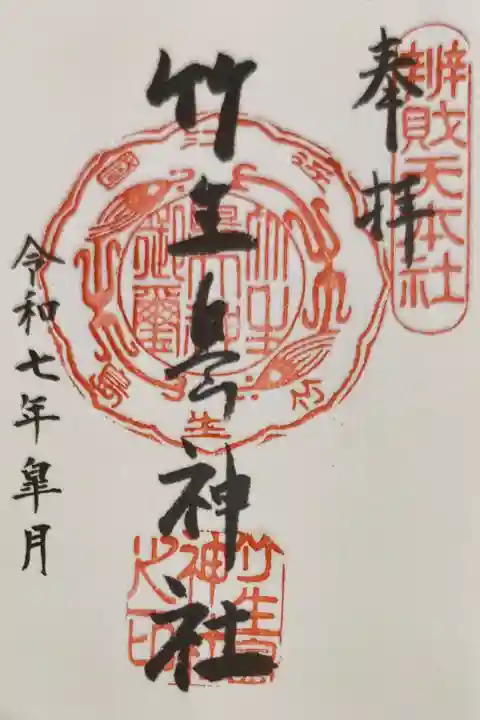 辨財天本社
奉拝
竹生島神社
竹生島神社之印
令和七年皐月